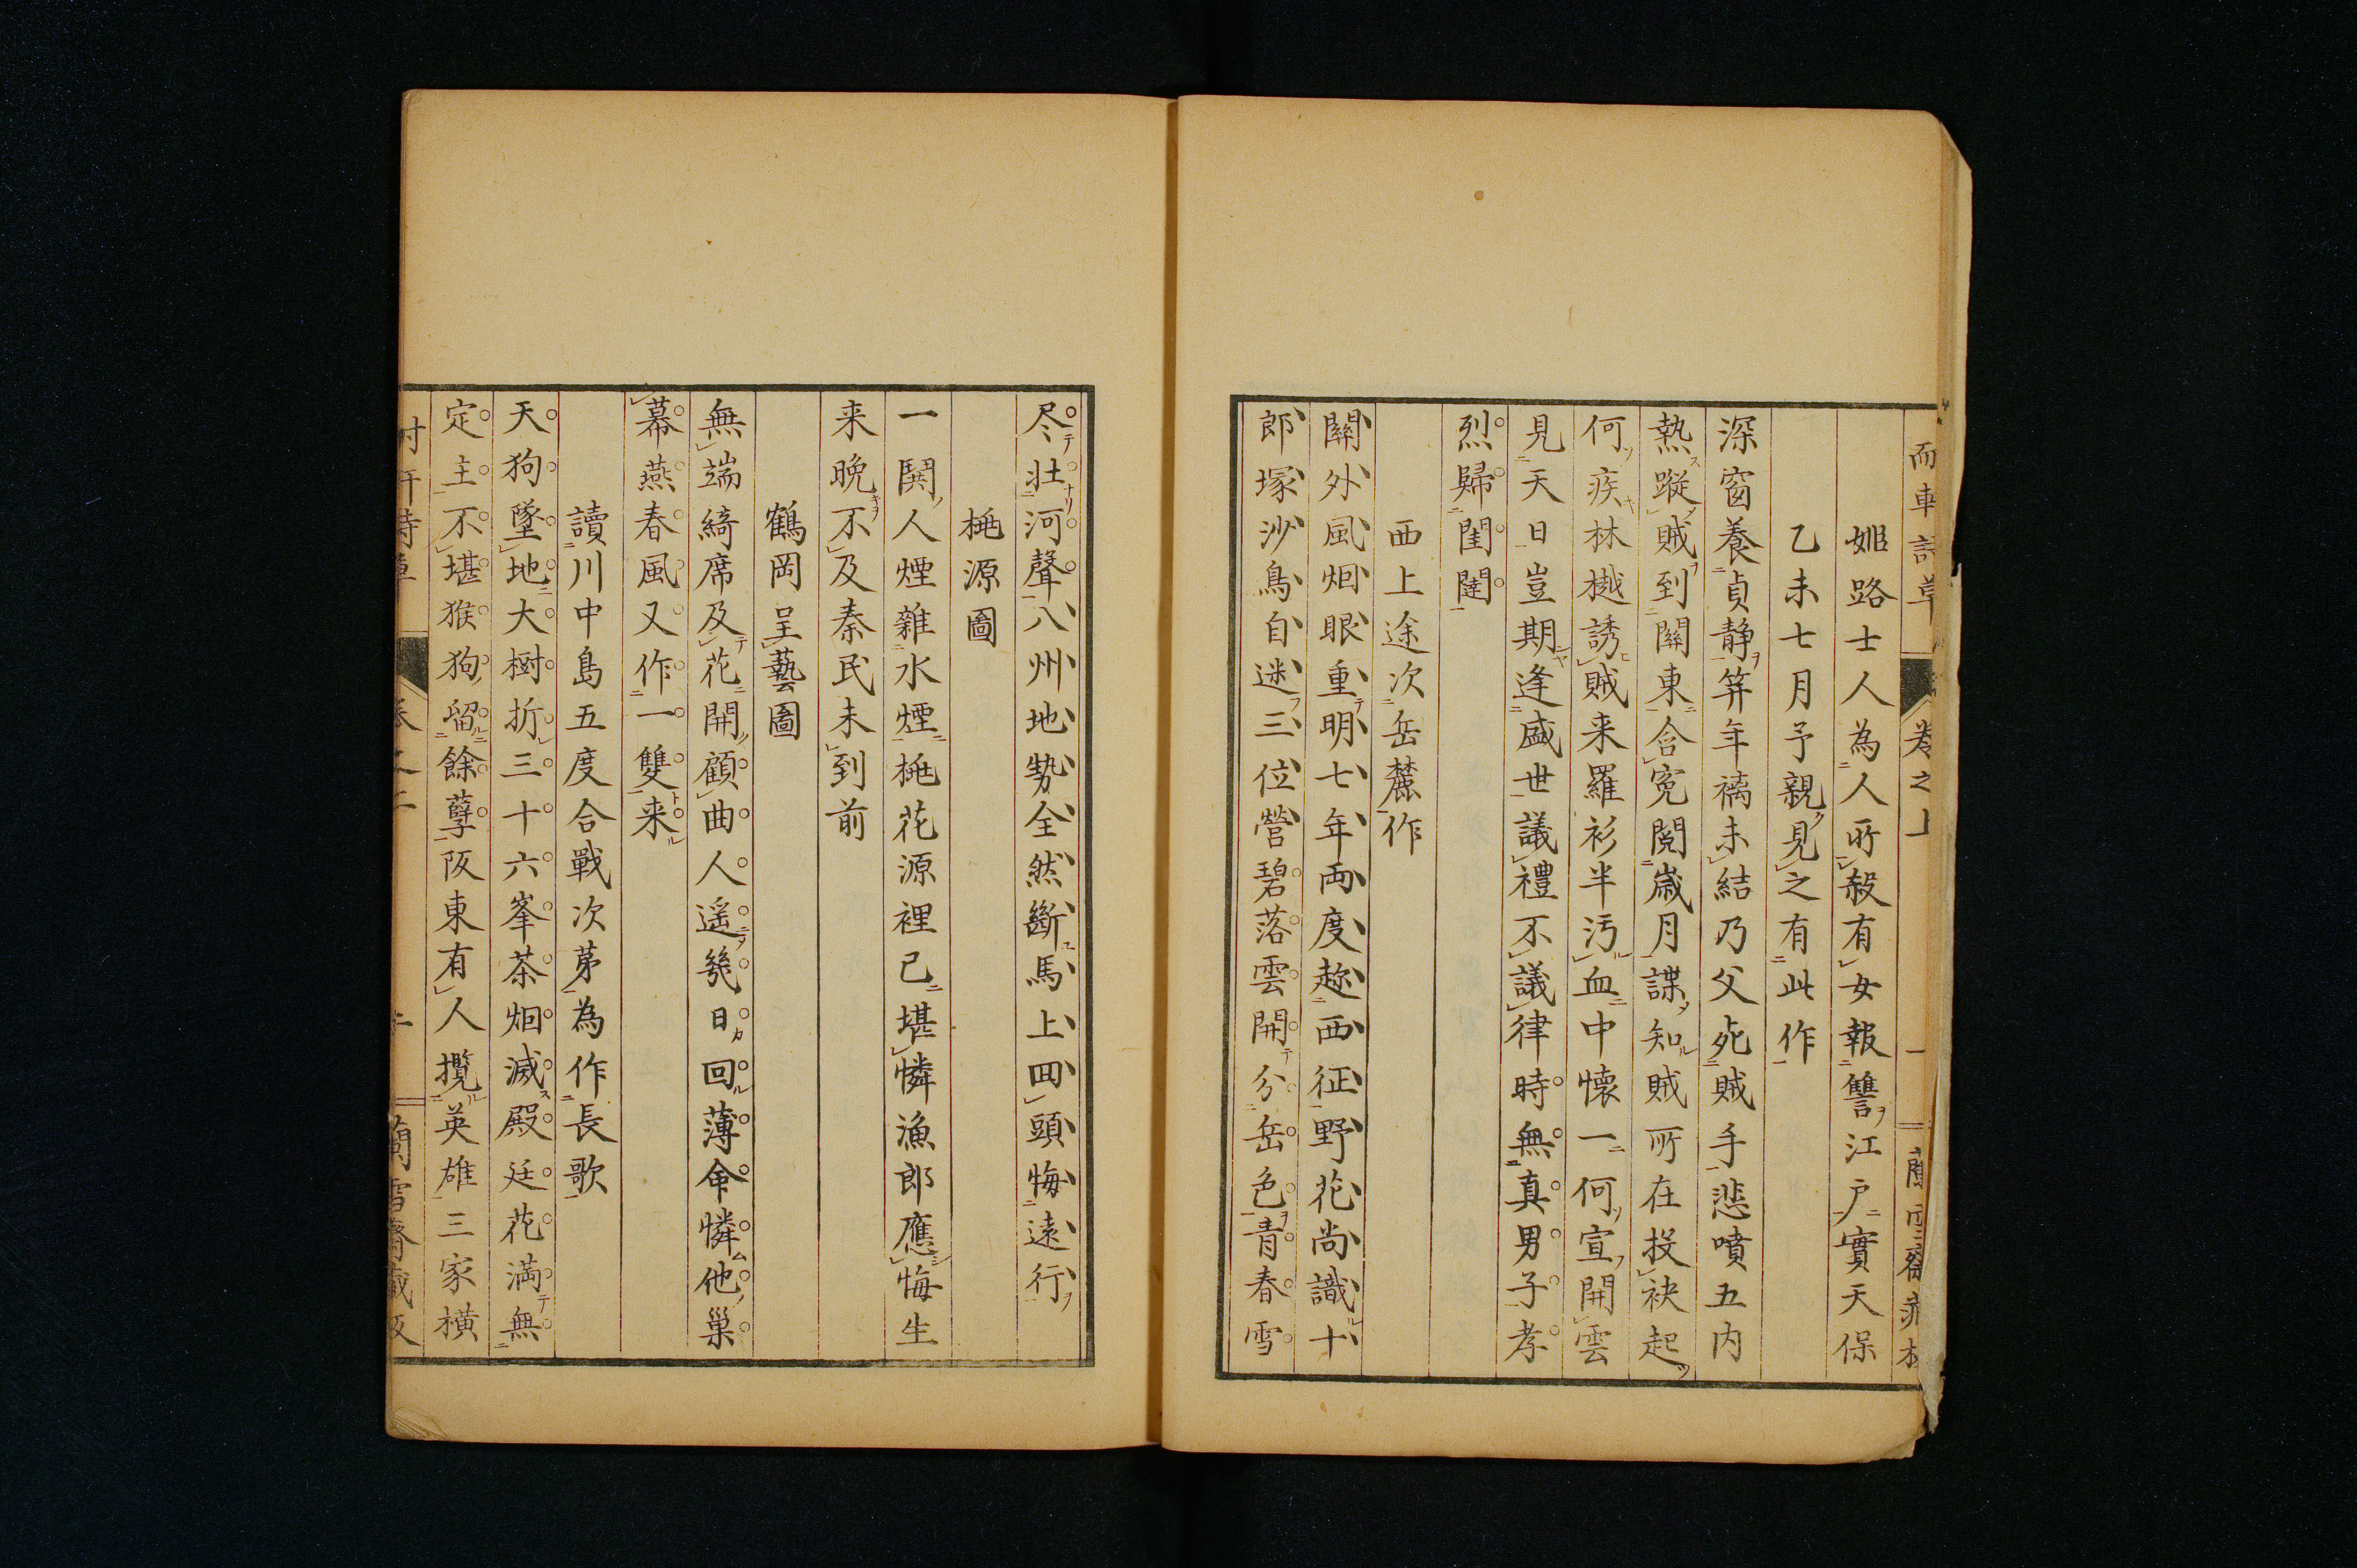 姫路士人為人所殺有女報讐江戸實天保
乙未七月予親見之有此作
深窗養貞静笄年褵未結乃父死賊手悲噴五内
熱蹤賊到關東含寃閲歳月諜知賊所在投袂起
何疾林樾誘賊来羅衫半汚血中懐一何宣開雲
見天日豈期逢盛世議禮不議律時無真男子孝
烈歸閨闥
西上途次岳麓作
關外風烟眼重明七年兩度趂西征野花尚識十
郎塚沙鳥自迷三位營碧落雲開分岳色青春雪
尽壮河聲八州地勢全然斷馬上回頭悔遠行
桃源圖
一鬨人煙雜水煙桃花源裡已堪憐漁郎應悔生
来晩不及秦民未到前
鶴岡呈藝圖
無端綺席及花開顧曲人遥幾日回薄命憐他巢
幕燕春風又作一雙来
讀川中島五度合戰次第為作長歌
天狗墜地大樹折三十六峯茶烟滅殿廷花満無
定主不堪猴狗留餘孽阪東有人攬英雄三家横